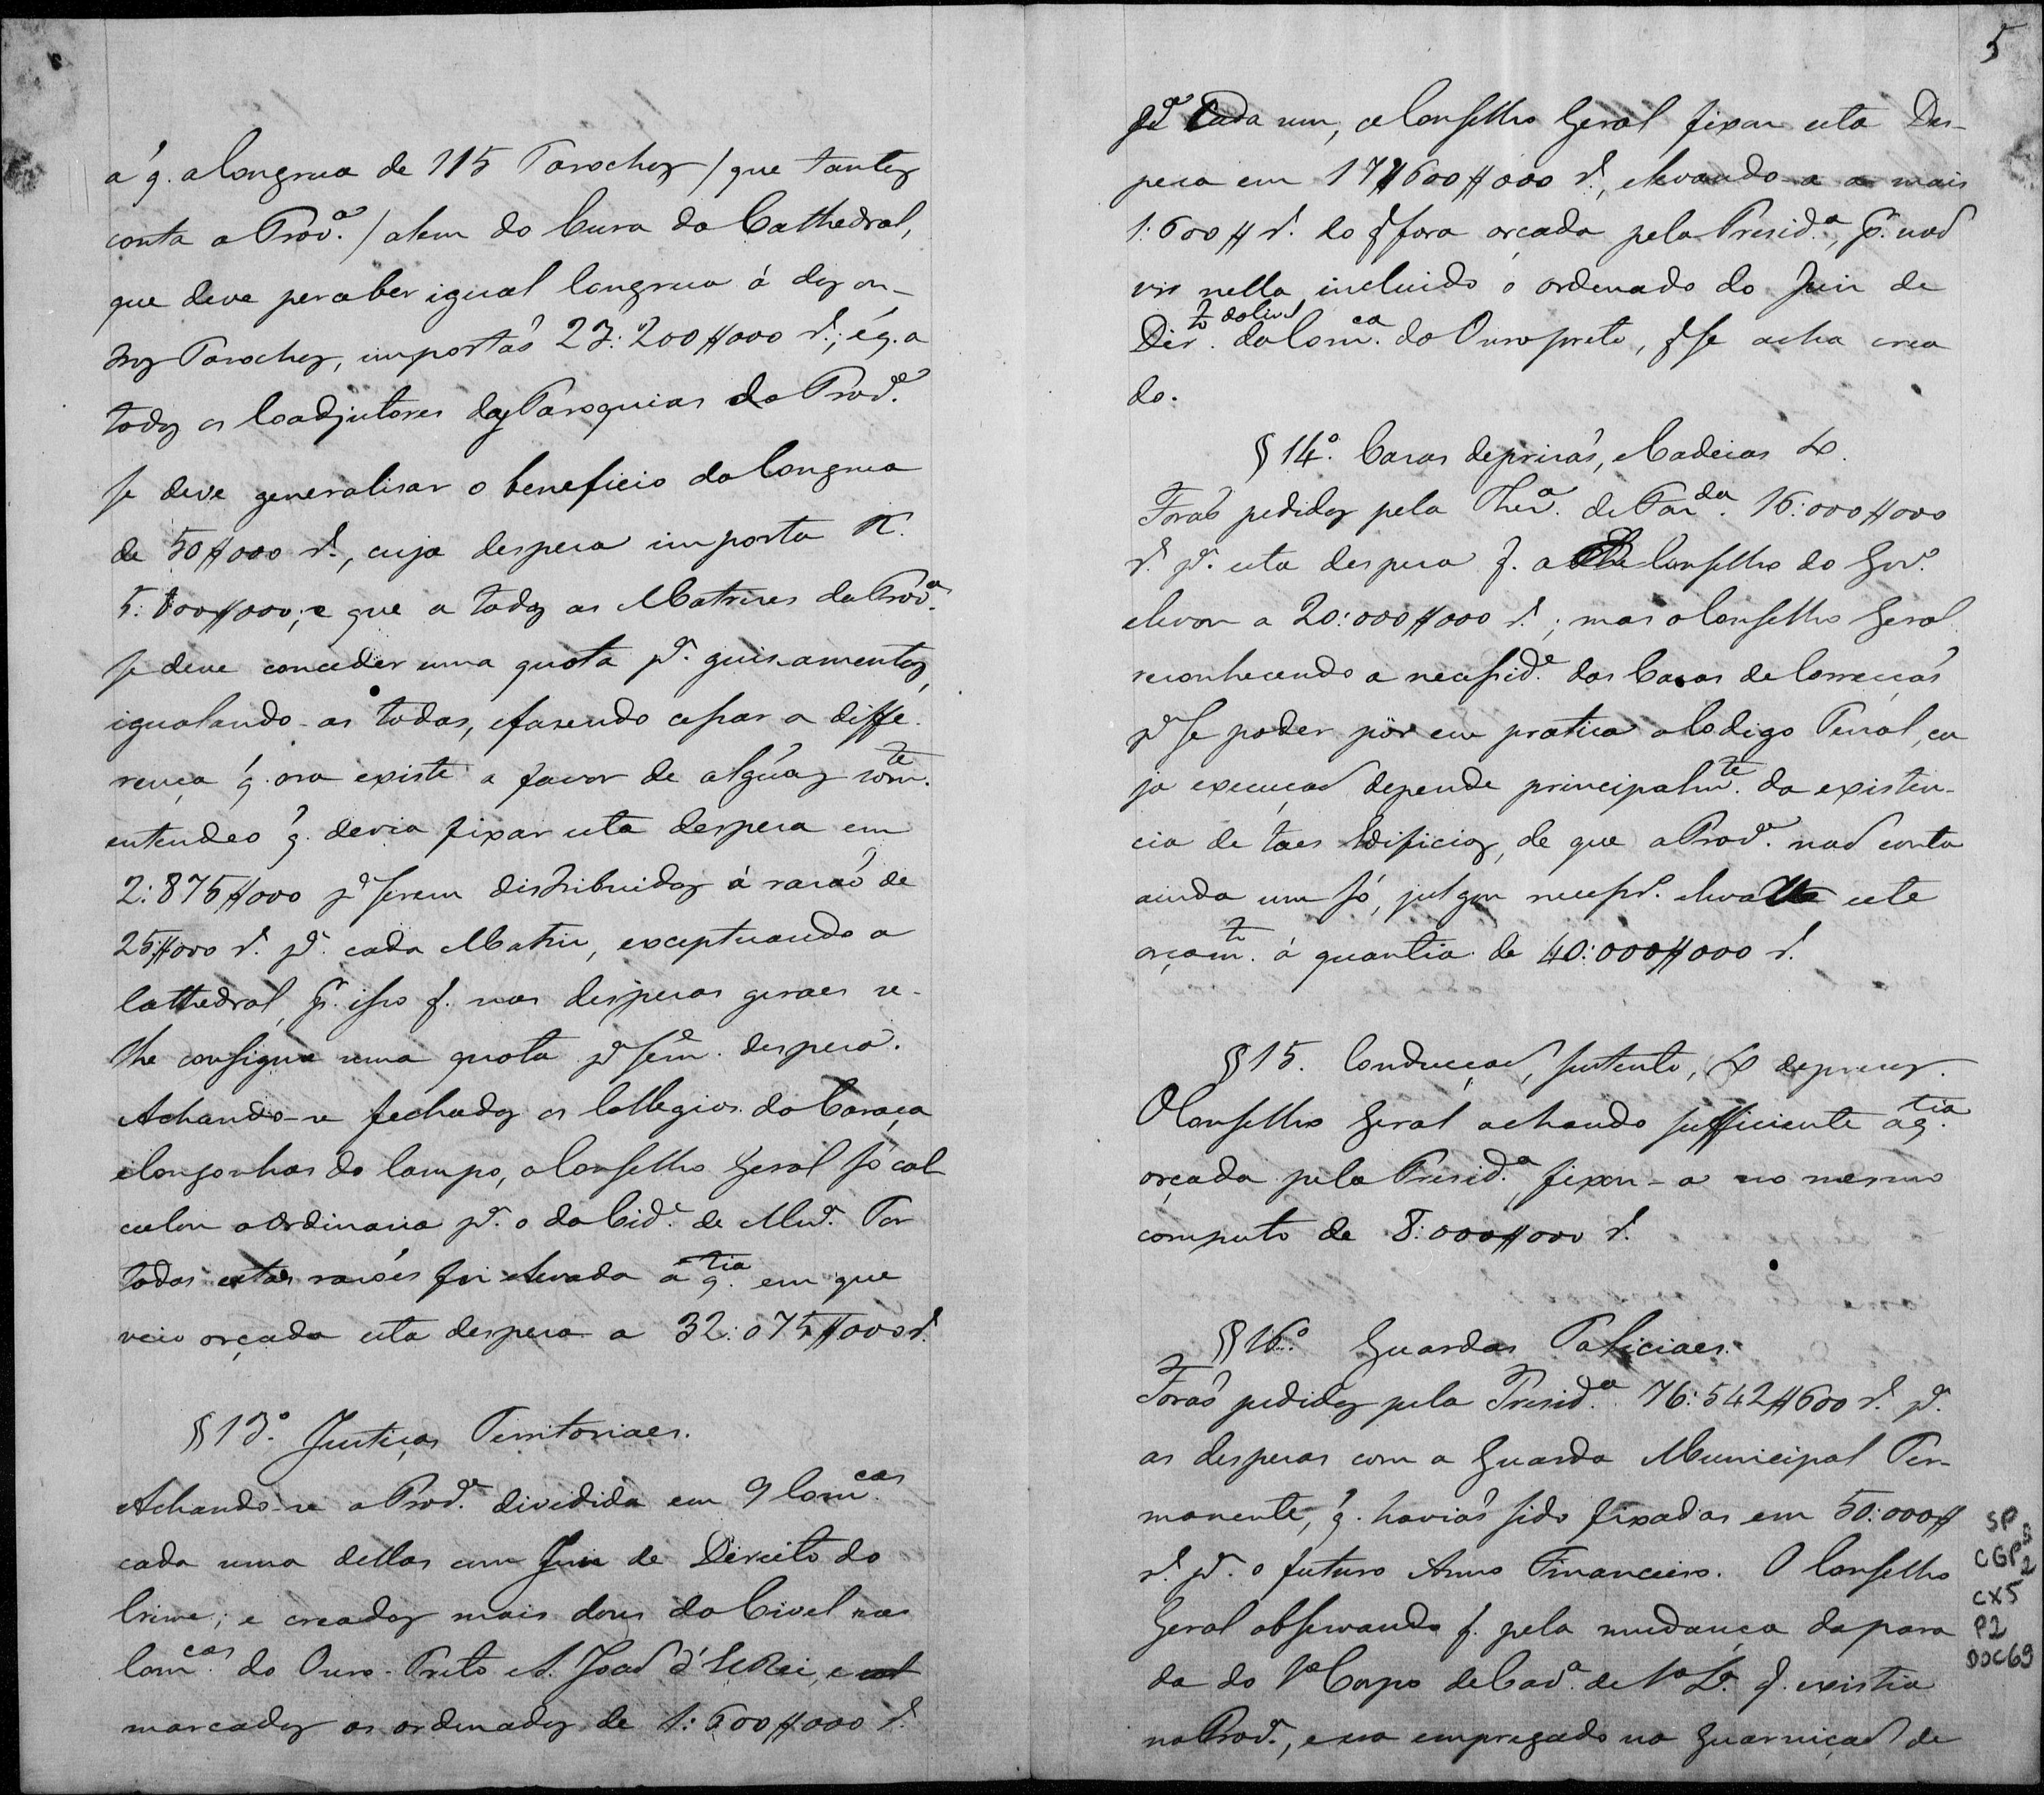 a q̃. a Congrua de 115 Parochos / que tantos
conta a Prov.ª / alem do Cura da Cathedral,
que deve perceber igual Congrua á dos ou-
tros Parochos, importaõ 23:200$000 r.ˢ; é q. a
todos os Coadjutores das Paroquias da Prov.ª
se deve generalisar o beneficio da Congrua
de 50$000 r.ˢ, cuja despeza importa R.
5:000$000; e que a todas as Matrizes da Prov.ª
se deve conceder uma quota p.ª guisamentos,
igualando-as todas, e fazendo cessar a diffe-
rença q̃. ora existe a favor de algũas som.te
entendeo q̃. devia fixar esta despeza em
2:875$000 p.ª serem distribuidos á razaõ de
25$000 r.ˢ p.ª cada Matriz, exceptuando a
Cathedral, p.r isso q. nas despezas geraes se
lhe consigna uma quota p.ª sem.e despeza.
Achando-se fechados os Collegios do Caraça
e Congonhas do Campo, o Conselho Geral só cal
culou a Ordinaria p.ª o da Cid.e de Mar.ª Por
todas estas razões foi elevada a q.tia em que
veio orçada esta despeza a 32:075$000 r.ˢ

§ 13.º Justiças Territoriaes.
Achando-se a Prov.ª dividida em 9 Com.cas
cada uma dellas com Juiz de Direito do
Crime; e creados mais dous do Civel nas
Com.cas do Ouro-Preto e S. Joaõ d'ElRei, e
marcados os ordenados de 1:600$000 r.ˢ
5
p.ª Cada um, o Conselho Geral fixou esta Des-
peza em 17$600$000 r.ˢ, elevando-a a mais
1:600$ r.ˢ do q̃ fora orçada pela Presid.ª, p.r naõ
vir nella incluido o ordenado do Juiz de
Dir.to do Civel da Com.ca do Ouro preto, q̃ se acha crea
do.

§ 14.º Casas de prizaõ, e Cadeias &.
Foraõ pedidos pela Thez.ª de Faz.da 16:000$000
r.ˢ p.ª esta despeza q. o Conselho do Gov.º
elevou a 20:000$000 r.ˢ; mas o Conselho Geral
reconhecendo a necessid.e das Casas de Correcçaõ
p.ª se poder pôr em pratica o Codigo Penal, cu
ja execuçaõ depende principalm.te da existen-
cia de taes Edificios, de que a Prov.ª naõ conta
ainda um só, julgou necess.º elevar este
orçam.to á quantia de 40:000$000 r.ˢ

§ 15. Conducçaõ, sustento, & de prezos.
O Conselho Geral achando sufficiente a q.tia
orçada pela Presid.ª, fixou-a no mesmo
computo de 8:000$000 r.ˢ

§ 16.º Guardas Policiaes.
Foraõ pedidos pela Presid.ª 76:542$600 r.ˢ p.ª
as despezas com a Guarda Municipal Per-
manente, q̃. haviaõ sido fixadas em 50:000$
r.ˢ p.ª o futuro Anno Financeiro. O Conselho
Geral observando q. pela mudança da para
da do 1º Corpo de Cav.ª de 1ª L.ª q. existia
na Prov.ª, e era empregado na Guarniçaõ de
SP
CGP3
2
CX5
P2
DOC69